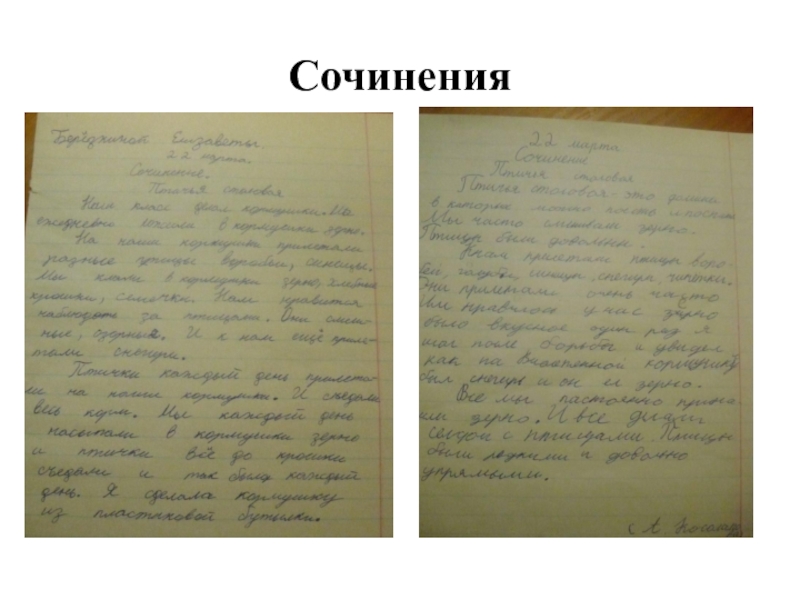 Сочинения
Елизаветы.
22 марта.
Сочинение.
Птичья столовая
Наш класс делал кормушки. Мы
ежедневно ложили в кормушки зерно.
На наши кормушки прилетали
разные птицы воробьи, синицы.
Мы клали в кормушки зерно, хлебные
крошки, семечки. Нам нравится
наблюдать за птицами. Они смеш-
ные, озорные. И к нам ещё приле-
тали снегири.
Птички каждый день прилета-
ли на наши кормушки. И съедали
весь корм. Мы каждый день
насыпали в кормушки зерно
и птички всё до крошки
съедали и так было каждый
день. Я сделала кормушку
из пластиковой бутылки.
22 марта
Сочинение
Птичья столовая
Птичья столовая - это домики
в которых можно поесть
Мы часто зерно.
Птицы были довольны.
К нам прилетали птицы воро-
бьи, голуби, синицы, снегири,
Они прилетали очень часто
Им нравилось у нас зерно
было вкусное один раз я
шёл после борьбы и увидел
как на кормушку
был снегирь и он ел зерно.
Все мы постоянно прино-
или зерно. И все
с птицами. Птицы
были и довольно
упрямыми.